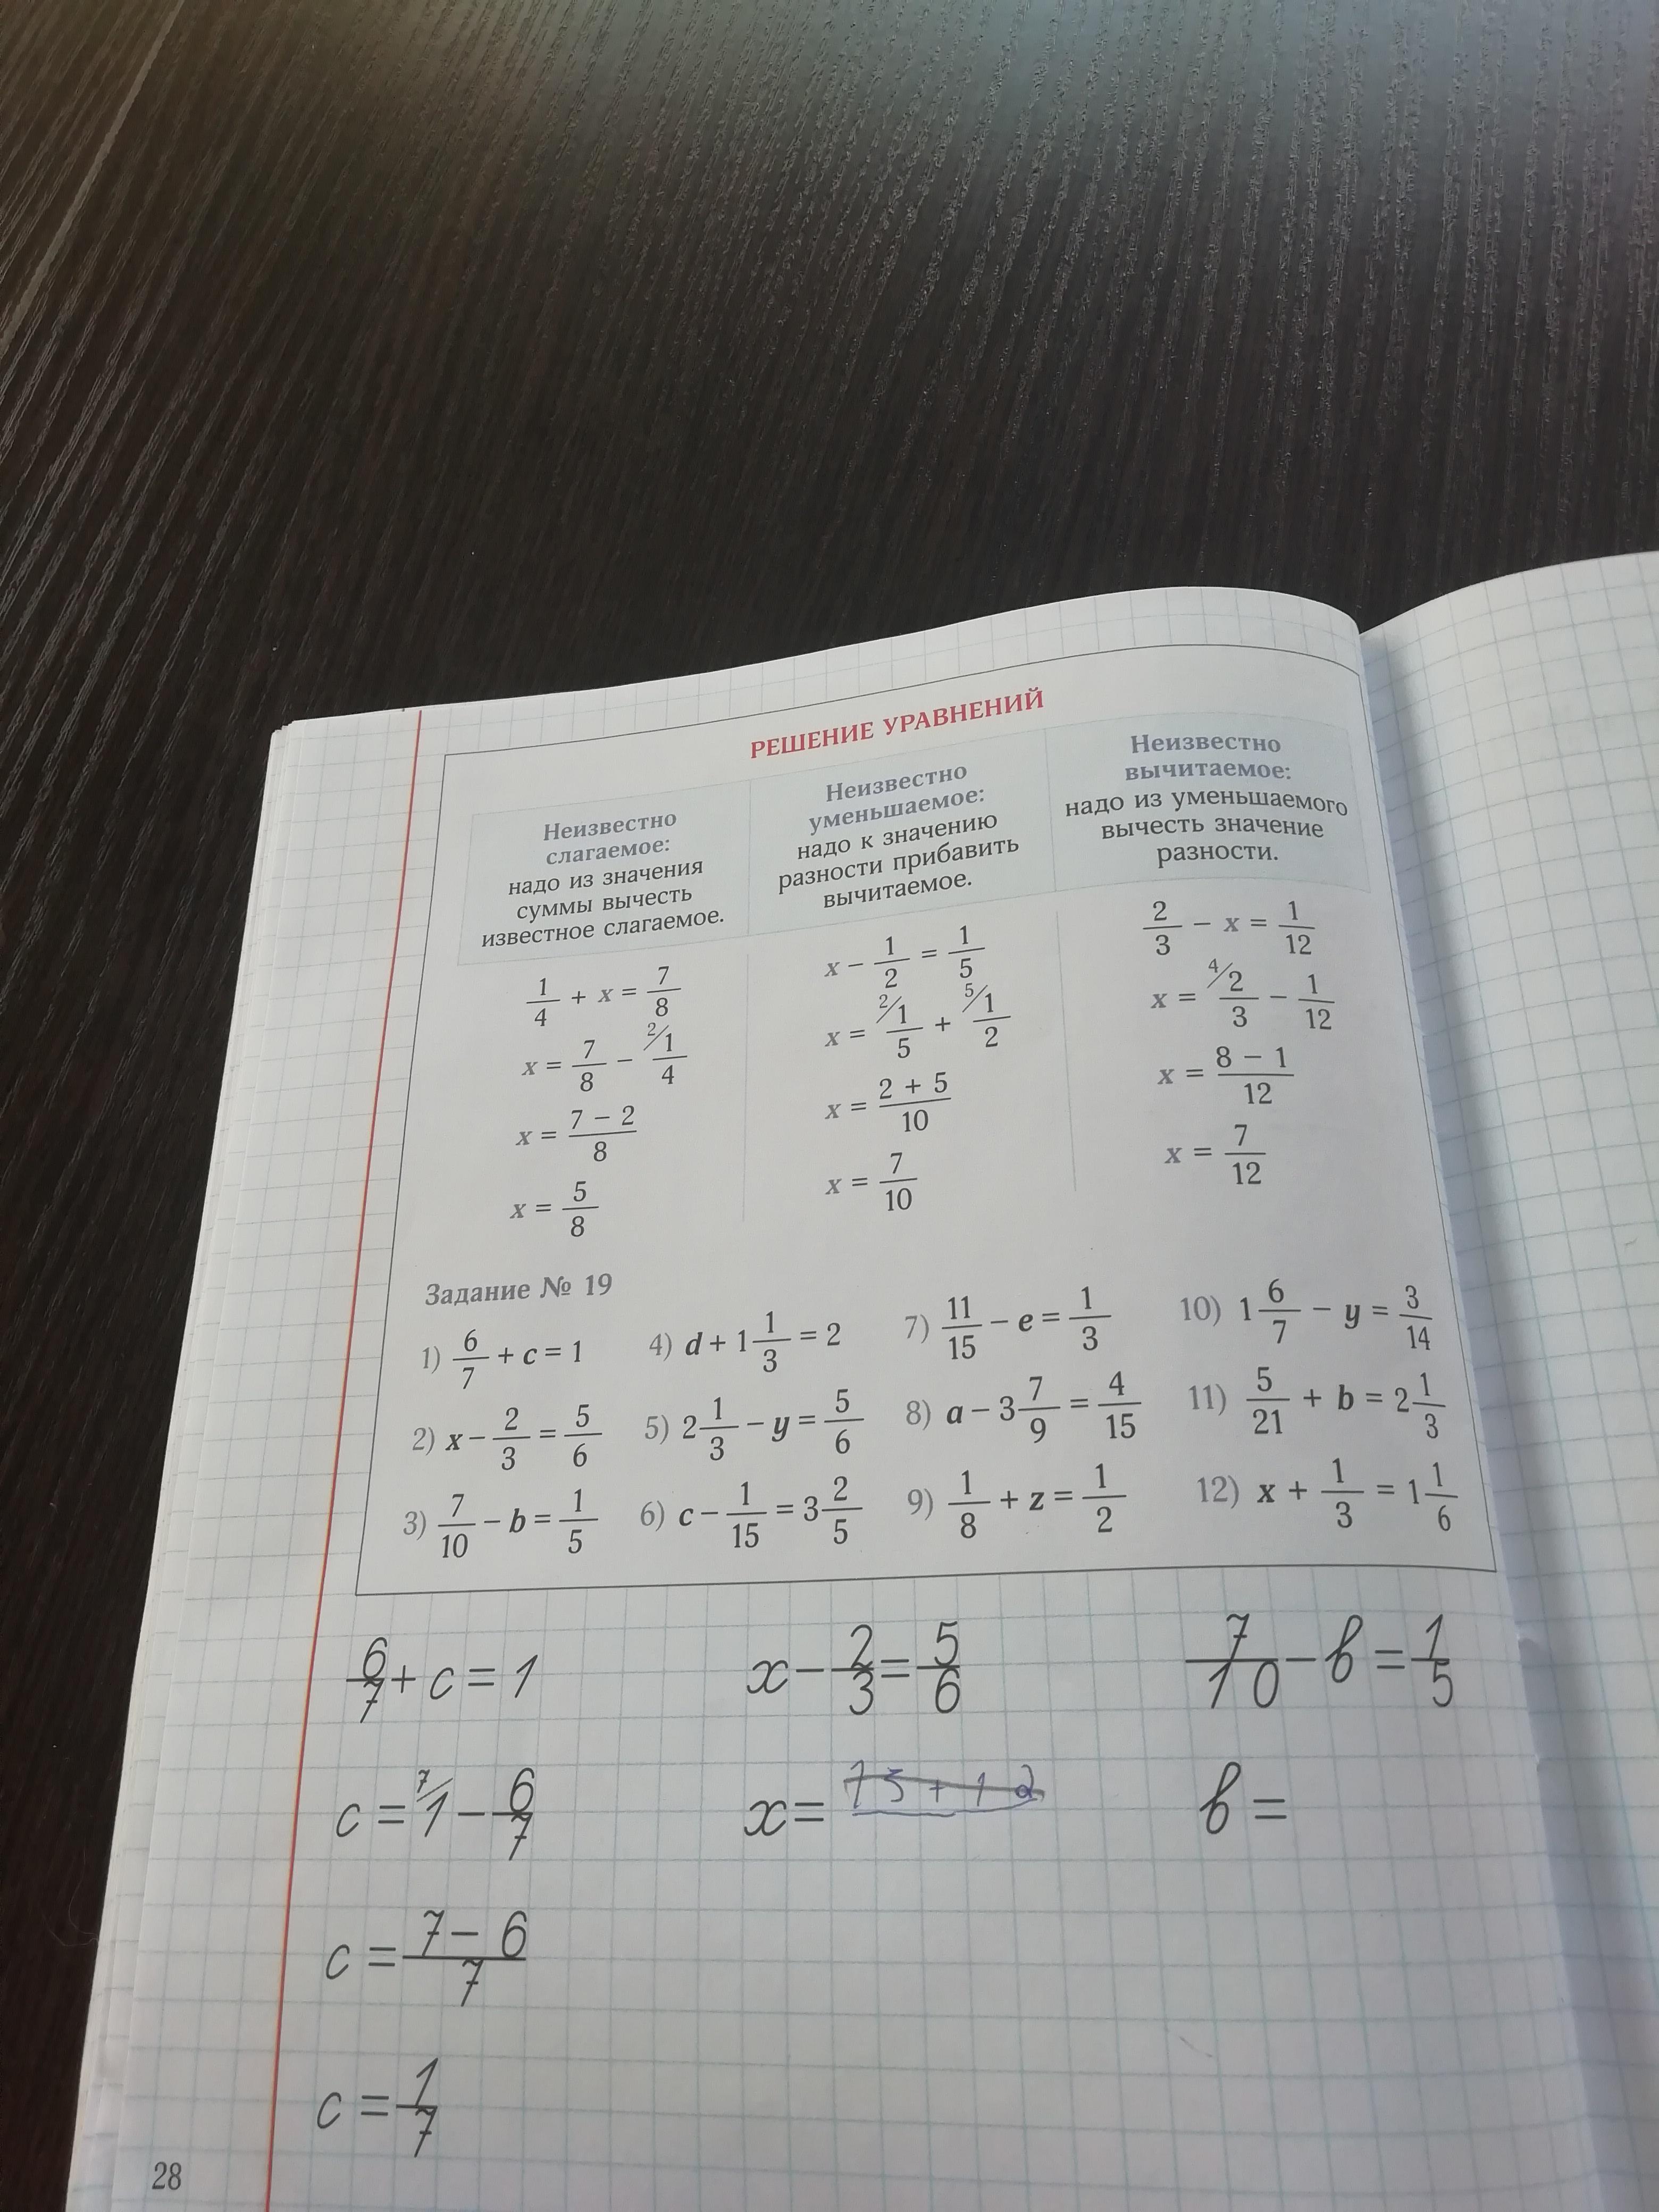 РЕШЕНИЕ УРАВНЕНИЙ
Неизвестно
слагаемое:
надо из значения
суммы вычесть
известное слагаемое.
1/4 + x = 7/8
x = 7/8 − ²⁄1/4
x = (7 − 2)/8
x = 5/8
Неизвестно
уменьшаемое:
надо к значению
разности прибавить
вычитаемое.
x − 1/2 = 1/5
x = ²⁄1/5 + ⁵⁄1/2
x = (2 + 5)/10
x = 7/10
Неизвестно
вычитаемое:
надо из уменьшаемого
вычесть значение
разности.
2/3 − x = 1/12
x = ⁴⁄2/3 − 1/12
x = (8 − 1)/12
x = 7/12
Задание № 19
1) 6/7 + c = 1
2) x − 2/3 = 5/6
3) 7/10 − b = 1/5
4) d + 1 1/3 = 2
5) 2 1/3 − y = 5/6
6) c − 1/15 = 3 2/5
7) 11/15 − e = 1/3
8) a − 3 7/9 = 4/15
9) 1/8 + z = 1/2
10) 1 6/7 − y = 3/14
11) 5/21 + b = 2 1/3
12) x + 1/3 = 1 1/6
6/7 + c = 1
c = ⁷⁄1 − 6/7
c = (7 − 6)/7
c = 1/7
x − 2/3 = 5/6
x =
7/10 − b = 1/5
b =
28